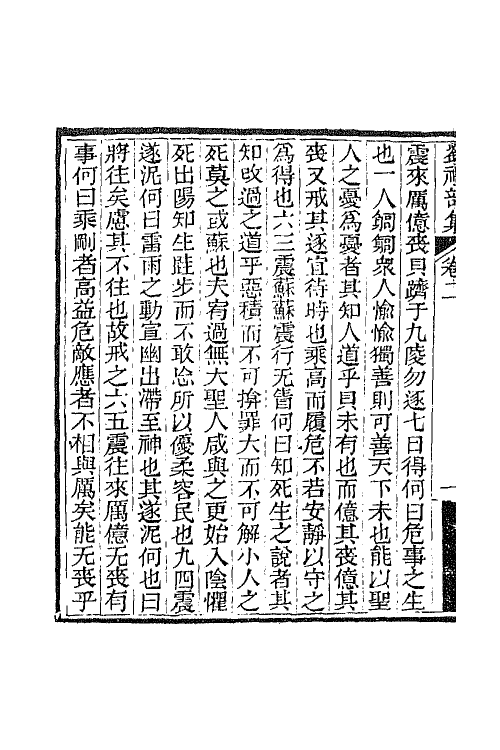 劉禮部集 卷二
震來厲億喪貝躋于九陵勿逐七日得何曰危事之生
也一人鍧鍧衆人愉愉獨善則可善天下未也能以聖
人之憂爲憂者其知人道乎貝未有也而億其喪億其
喪又戒其逐宜待時也乘高而履危不若安靜以守之
爲得也六三震蘇蘇震行无眚何曰知死生之說者其
知改過之道乎惡積而不可揜罪大而不可解小人之
死莫之或蘇也夫宥過無大聖人咸與之更始入陰懼
死出陽知生跬步而不敢忘所以優柔容民也九四震
遂泥何曰雷雨之動宣幽出滯至神也其遂泥何也曰
將往矣慮其不往也故戒之六五震往來厲億无喪有
事何曰乘剛者高益危敵應者不相與厲矣能无喪乎